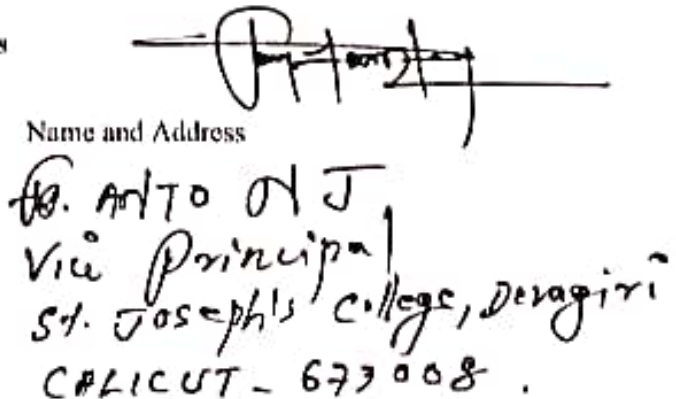 Name and Address
Fr. ANTO N J
Vice Principal
St. Joseph's College, Devagiri
CALICUT - 673008 .